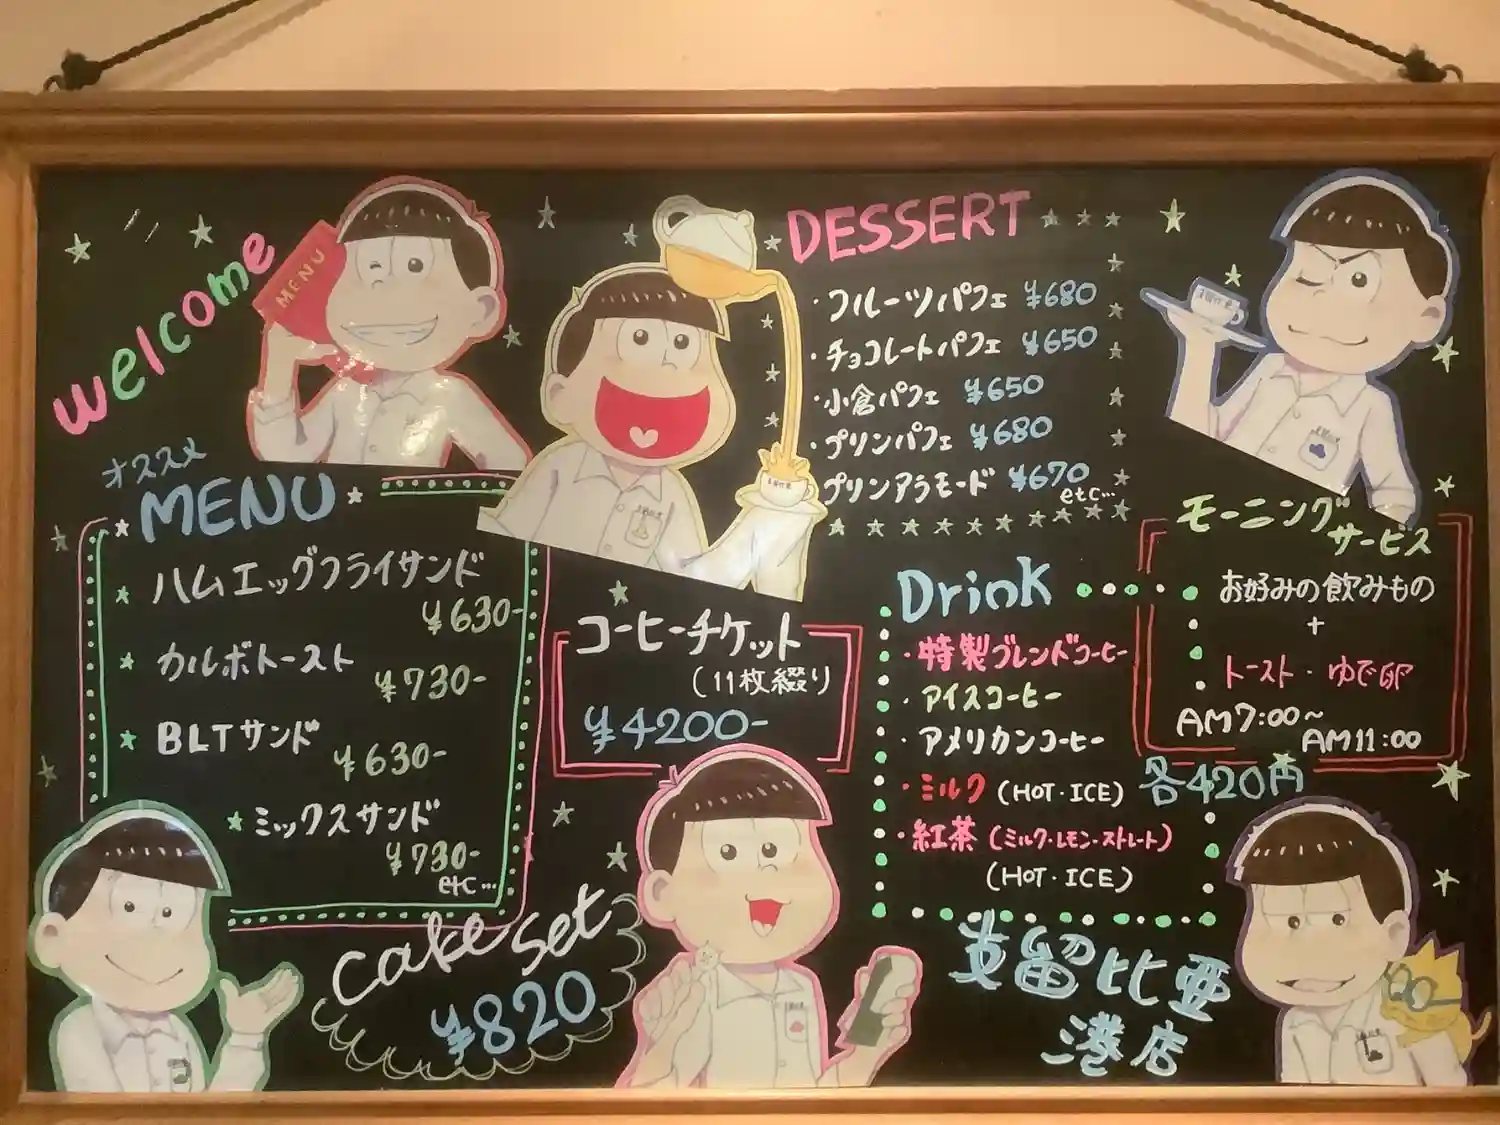 welcome
MENU
オススメ
MENU
ハムエッグフライサンド
¥630-
カルボトースト
¥730-
BLTサンド
¥630-
ミックスサンド
¥730-
etc…
コーヒーチケット
(11枚綴り
¥4200-
cake set
¥820
DESSERT
・フルーツパフェ ¥680
・チョコレートパフェ ¥650
・小倉パフェ ¥650
・プリンパフェ ¥680
・プリンアラモード ¥670
etc…
Drink
・特製ブレンドコーヒー
・アイスコーヒー
・アメリカンコーヒー
・ミルク (HOT・ICE)
・紅茶 (ミルク・レモン・ストレート)
(HOT・ICE)
モーニング
サービス
お好みの飲みもの
+
トースト・ゆで卵
AM7:00~
AM11:00
各420円
支留比亜
港店